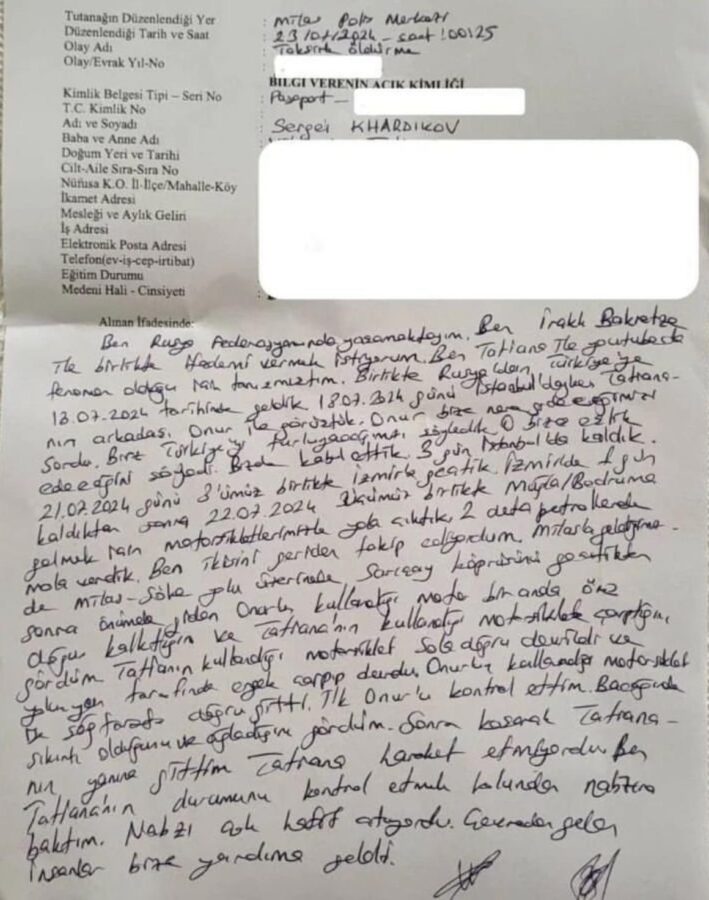 Tutanağın Düzenlendiği Yer : Milas Polis Merkezi
Düzenlendiği Tarih ve Saat : 23/07/2024 - saat : 00:25
Olay Adı : Taksirle öldürme
Olay/Evrak Yıl-No :
BİLGİ VERENİN AÇIK KİMLİĞİ
Kimlik Belgesi Tipi – Seri No : Pasaport –
T.C. Kimlik No :
Adı ve Soyadı : Sergei KHARDIKOV
Baba ve Anne Adı
Doğum Yeri ve Tarihi
Cilt-Aile Sıra-Sıra No
Nüfusa K.O. İl-İlçe/Mahalle-Köy
İkamet Adresi
Mesleği ve Aylık Geliri
İş Adresi
Elektronik Posta Adresi
Telefon(ev-iş-cep-irtibat)
Eğitim Durumu
Medeni Hali - Cinsiyeti :
Alınan İfadesinde:
Ben Rusya Federasyonunda yaşamaktayım. Ben Irakli
ile birlikte ifademi vermek istiyorum. Ben Tatiana ile youtube'da
fenomen olduğu için tanışmıştım. Birlikte Rusya'dan, Türkiye'ye
13.07.2024 tarihinde geldik 18.07.2024 günü İstanbul'dayken Tatiana-
nın arkadaşı Onur ile görüştük. Onur bize nereye gideceğimizi
sordu. Biz Türkiye'yi turlayacağımızı söyledik O bize eşlik
edeceğini söyledi. Bizde kabul ettik. 3 gün İstanbul'da kaldık.
21.07.2024 günü 3'ümüz birlikte İzmir'e geçtik. İzmirde 1 gün
kaldıktan sonra 22.07.2024 birlikte Muğla/Bodruma
gelmek için motorsikletlerimizle yola çıktık. 2 defa petrollerde
mola verdik. Ben ikisini geriden takip ediyordum. Milas'a geldiğimiz-
de Milas-Söke yolu üzerinde, Sarıçay köprüsünü geçtikten
sonra önümde giden Onur'un kullandığı motor bir anda öne
doğru kalktığını ve Tatiana'nın kullandığı motorsiklete çarptığını
gördüm Tatiana'nın kullandığı motorsiklet sola doğru devrildi ve
yolun yan tarafında çarpıp durdu. Onur'un kullandığı motorsiklet
de sağ tarafa doğru gitti. İlk Onur'u kontrol ettim. Bacağında
sıkıntı olduğunu ve ağladığını gördüm. Sonra koşarak Tatiana-
nın yanına gittim Tatiana hareket etmiyordu. Ben
Tatiana'nın durumunu kontrol etmek kolundan nabzına
baktım. Nabzı çok hafif atıyordu. Çevreden gelen
insanlar bize yardıma geldi.